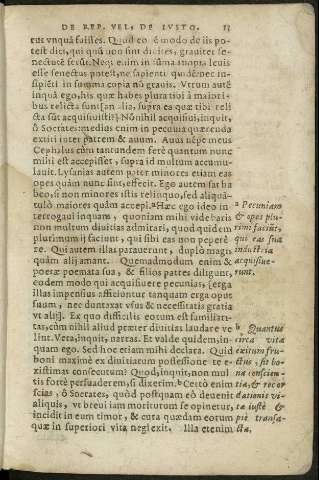 DE REP. VEL, DE IVSTO.
rūt vnquā fuisses. Quod eodē modo de iis po-
test dici, qui quū non sint diuites, grauiter se-
nectutē ferūt. Neq; enim in sūma inopia leuis
esse senectus potest, ne sapienti quidē: nec in-
sipiēti in summa copia nō grauis. Vtrum autē
inquā ego, his quæ habes plura tibi à maiori-
bus relicta sunt
cta sūt acquisiuisti? Nōnihil acquisiui, inquit,
ô Socrates: medius enim in pecunia quærenda
extiti inter patrem & auum. Auus nēpe meus
Cephalus cùm tantundem ferè quantum nunc
mihi est accepisset, supra id multum accumu-
lauit. Lysanias autem pater minores etiam eas
opes quàm nunc sint, effecit. Ego autem sat ha
beo, si non minores istis relinquo, sed aliquā-
tulò maiores quàm accepi. ᵃ Hæc ego ideo in
terrogaui inquam, quoniam mihi videbaris
non multum diuitias admirari, quod quidem
plurimum ij faciunt, qui sibi eas non peperê
re. Qui autem illas parauerunt, duplò magis
quàm alij amant. Quemadmodum enim &
poetæ poemata sua, & filios patres diligunt,
eodem modo qui acquisiuere pecunias, erga
illas impensius afficiuntur tanquam erga opus
suum, nec duntaxat vsus & necessitatis gratia
vt alij. Ex quo difficilis eorum est familiari-
tas, cùm nihil aliud præter diuitias laudare ve
lint. Vera, inquit, narras. Et valde quidem, in-
quam ego. Sed hoc etiam mihi declara. Quid
boni maximè ex diuitiarum possessione te e-
xistimas consecutum? Quod, inquit, non mul
tis fortè persuaderem, si dixerim. ᵇ Certò enim
scias, ô Socrates, quòd postquam eò deuenit
aliquis, vt breui iam moriturum se opinetur,
incidit in eum timor, & cura quædam eorum
quæ in superiori vita neglexit. Illa etenim
a Pecuniam
& opes plu-
rimi faciūt,
qui eas sua
industria
acquisiue-
runt.
b Quantùm
circa vitæ
exitum fru-
ctus, sit bo-
na conscien-
tia, & recor
dationis vi-
tæ iustè &
piè transa-
cta.